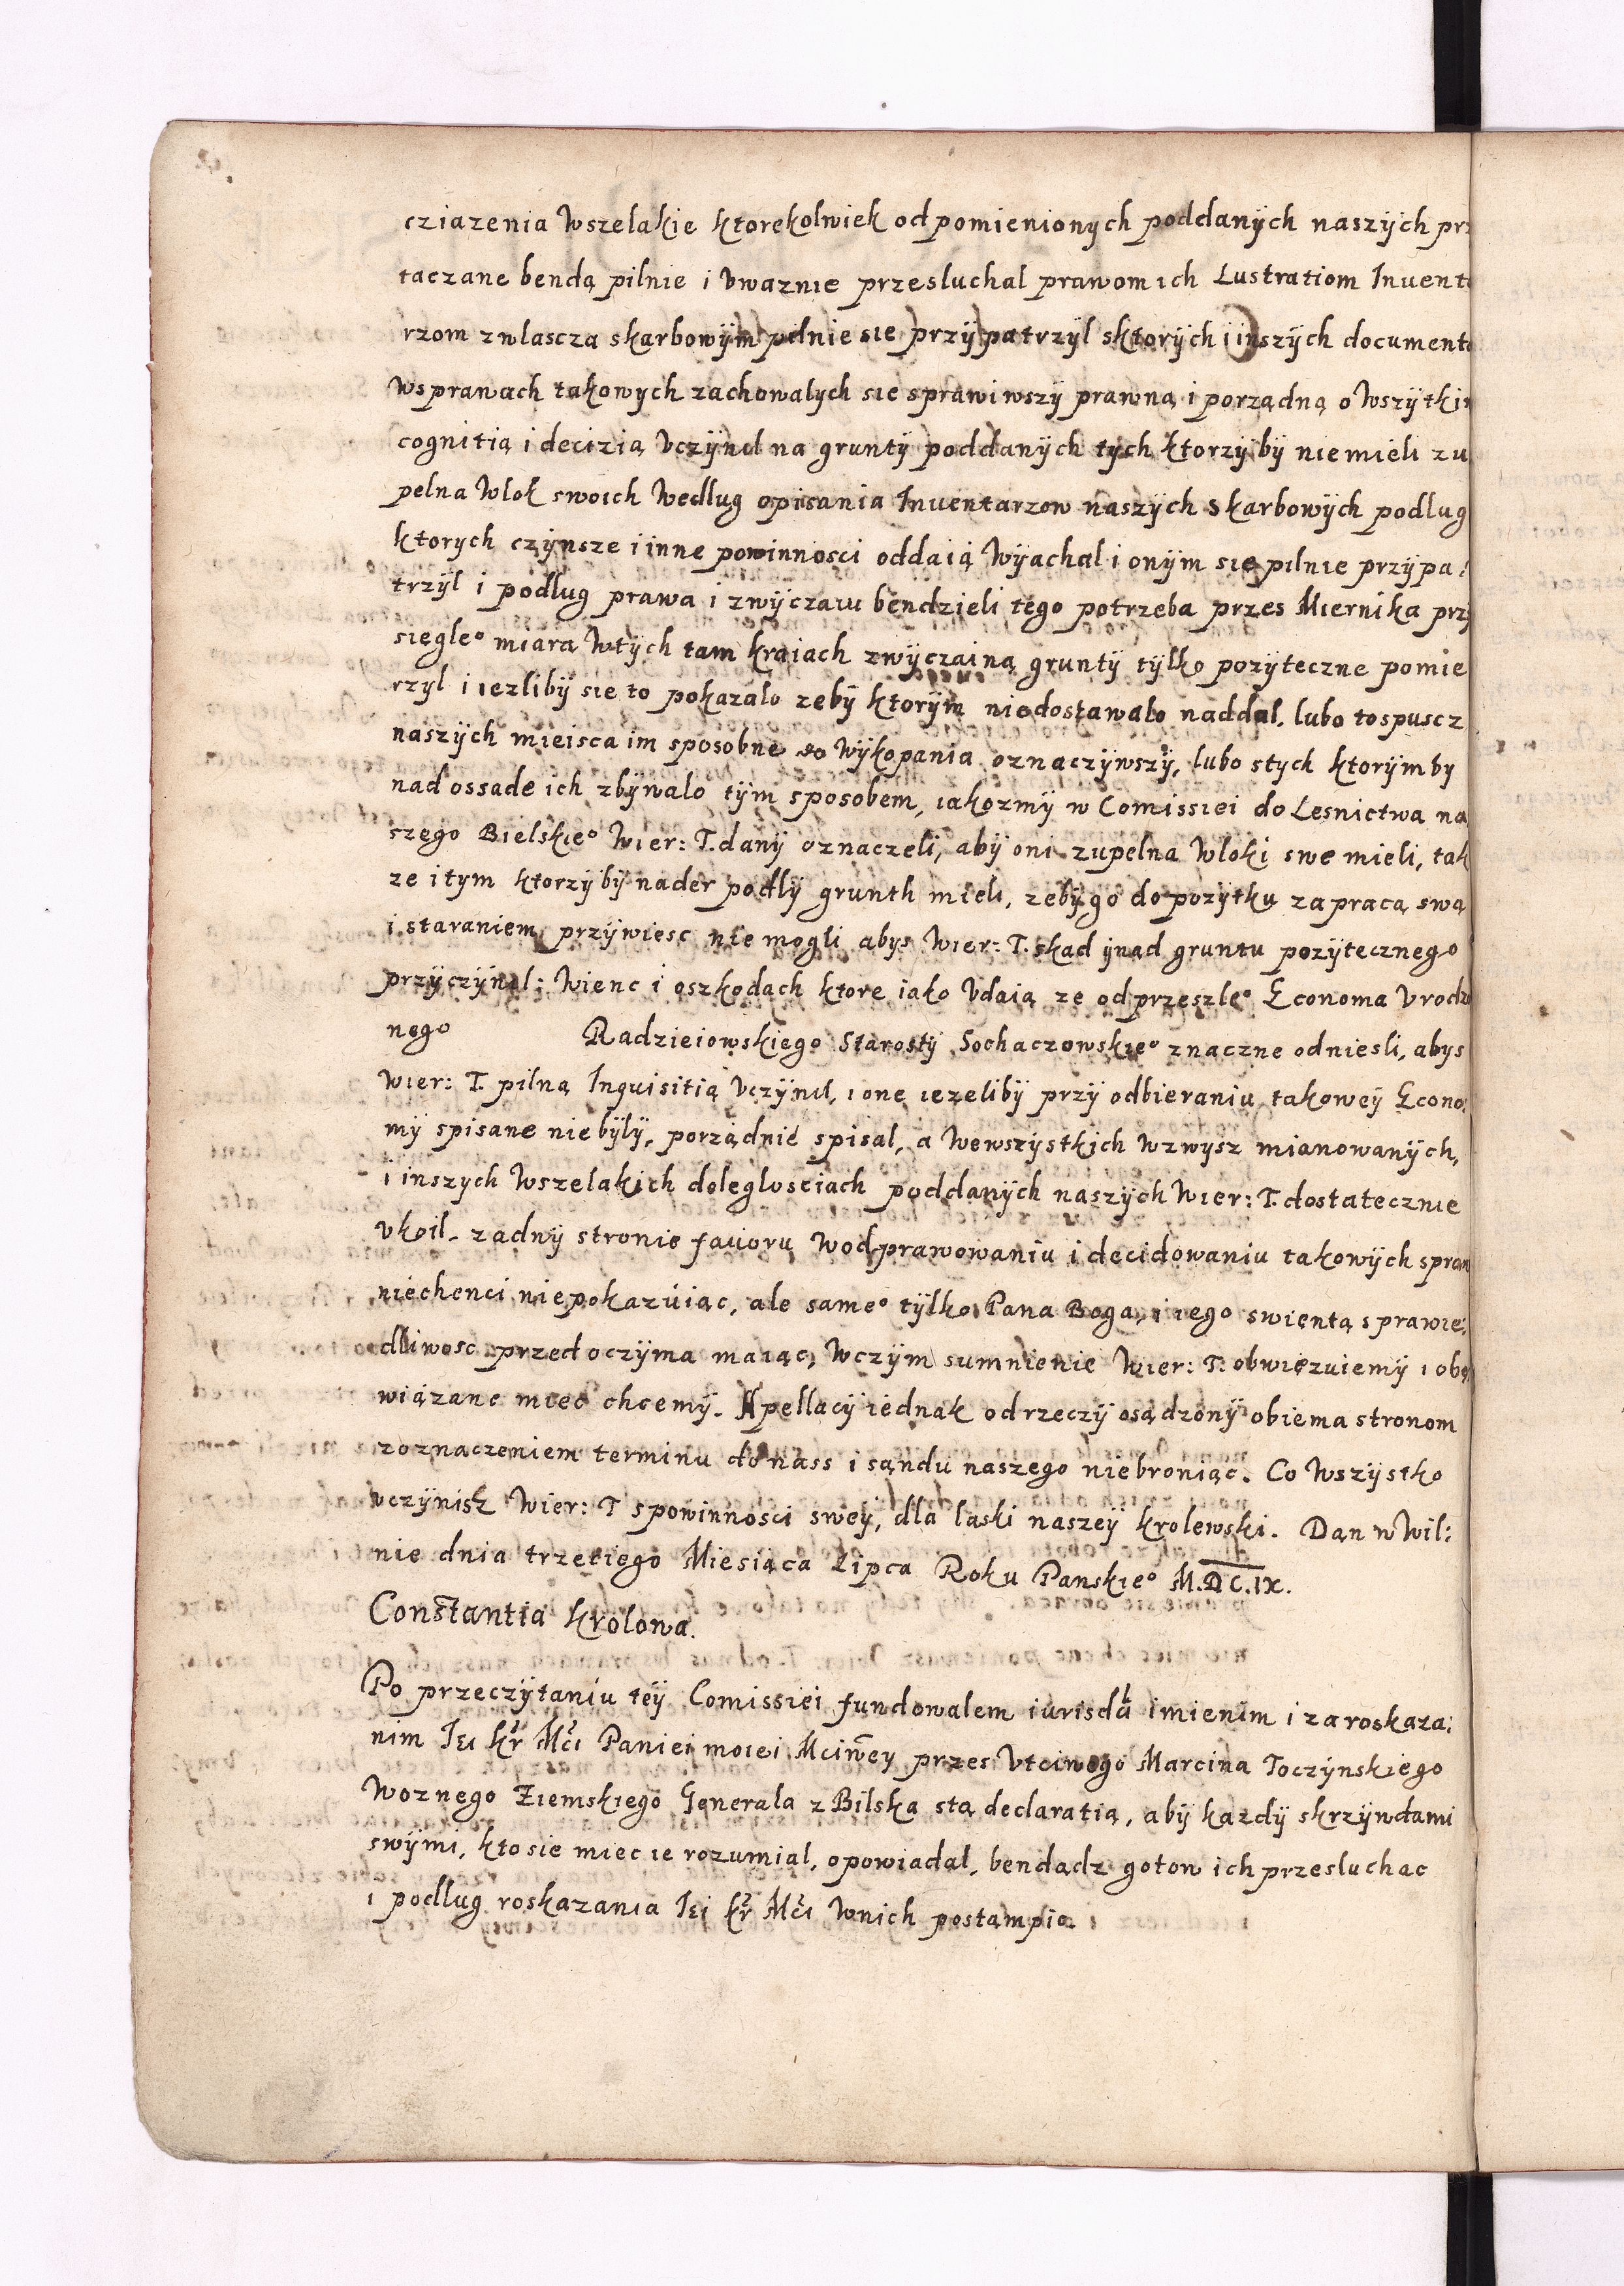 cziazenia Wszelakie ktorekolwiek od pomienionych poddanÿch naszÿch prz
taczane bendą pilnie i Vwaznie przesluchal prawom ich Lustratiom Inuenta
rzom zwlascza skarbowÿm pilnie sie przÿpatrzÿl sktorÿch i inszÿch documento
Wsprawach takowych zachowalych sie sprawiwszÿ prawną i porządną o Wszÿtkim
cognitią i decizią Vczÿnil na gruntÿ poddanÿch tÿch ktorzÿbÿ niemieli zu
pelna Wlok swoich Wedlug opisania Inuentarzow naszÿch skarbowÿch podlug
ktorych czÿnsze i inne powinnosci oddaią Wÿachal i onÿm sie pilnie przÿpa:
trzÿl i podlug prawa i zwÿczaiu bendzieli tego potrzeba przes Miernika przÿ
siegle° miara Wtÿch tam kraiach zwÿczainą gruntÿ tÿlko pozÿteczne pomie
rzÿl i iezlibÿ sie to pokazalo zebÿ ktorÿm niedostawalo naddal, lubo tospuscz
naszÿch mieisca im sposobne do Wÿkopania oznaczÿwszÿ, lubo stych ktorÿmby
nad ossade ich zbÿwalo tÿm sposobem, iakozmÿ w Comissiei do Lesnictwa na
szego Bielskie° Wier: T. danÿ oznaczeli, abÿ oni zupelna Wloki swe mieli, tak
ze i tym ktorzÿbÿ nader podlÿ grunth mieli, zebÿ go do pozÿtku za pracą swą
i staraniem przÿwiesc nie mogli abys Wier: T. skad ÿnad gruntu pozÿtecznego
przÿczÿnil: Wienc i oszkodach ktore iako Vdaią ze od przeszle° Economa Vrodzo
nego Radzieiowskiego Starostÿ Sochaczowskie° znaczne odniesli, abys
Wier: T. pilną Inquisitią Vczÿnil, i one iezelibÿ przÿ odbieraniu takowey Econo:
mÿ spisane niebÿlÿ, porządnie spisal, a Wewszÿstkich Wzwysz mianowanÿch,
i inszych Wszelakich doleglosciach poddanÿch naszÿch Wier: T. dostatecznie
Vkoil. zadnÿ stronie fauoru Wodprawowaniu i decidowaniu takowÿch spraw
niechenci niepokazuiąc, ale same° tÿlko Pana Boga, i iego swientą sprawie:
dliwosc przed oczÿma maiąc, Wczÿm sumnienie Wier: T. obwiezuiemÿ i obo
wiązane miec chcemÿ. Apellacÿ iednak od rzeczÿ osądzonÿ obiema stronom
zoznaczeniem terminu do nass i sąndu naszego niebroniąc. Co Wszÿstko
vczÿnisz Wier: T spowinnosci sweÿ, dla laski naszeÿ krolewski. Dan w Wil:
nie dnia trzetiego Miesiąca Lipca Roku Panskie° M.DC.IX.
Constantia Krolowa.
Po przeczÿtaniu teÿ Comissiei fundowalem iurisdą imienim i za roskaza:
nim Jei Kr Mci Paniei moiei Mciwey przes Vtciwego Marcina Toczÿnskiego
Woznego Ziemskiego Generala z Bilska stą declaratią, abÿ kazdÿ skrzÿwdami
swÿmi, kto sie miec ie rozumial, opowiadal, bendądz gotow ich przesluchac
i podlug roskazania Jei Kr Mci Wnich postampic.